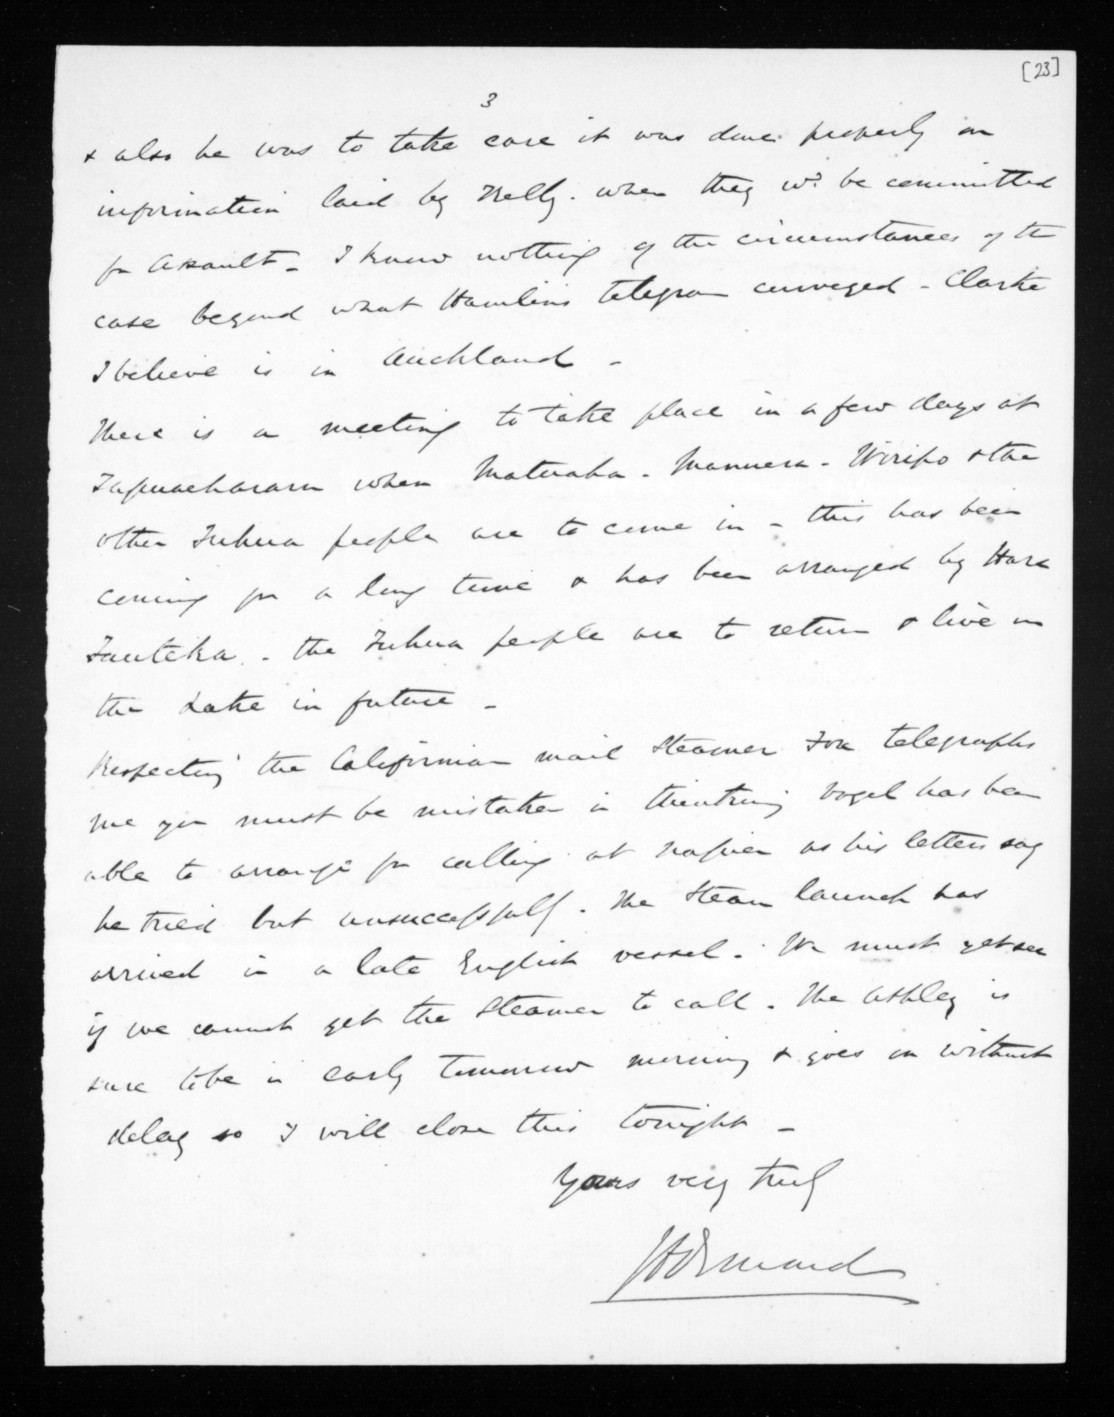 [23]
3
& also he was to take care it was done properly on
information laid by Kelly. when they wd. be committed
for assault - I know nothing of the circumstances of the
case beyond what Hamlins telegram conveyed - Clarke
I believe is in Auckland -
There is a meeting to take place in a few days at
Tapuaeharuru when Matuaha - Manuera - Wiripo & the
other Tuhua people are to come in - this has been
coming for a long time & has been arranged by Hare
Tauteka - the Tuhua people are to return & live in
the Lake in future -
Respecting the Californian mail steamer Fox telegraphs
me you must be mistaken in thinking Vogel has been
able to arrange for calling at Napier as his letters say
he tried but unsuccessfully. The Steam launch has
arrived in a late English vessel. We must yet see
if we cannot get the Steamer to call. The Ashley is
sure to be in early tomorrow morning & goes on without
delay so I will close this tonight -
Yours very truly
JDOrmond